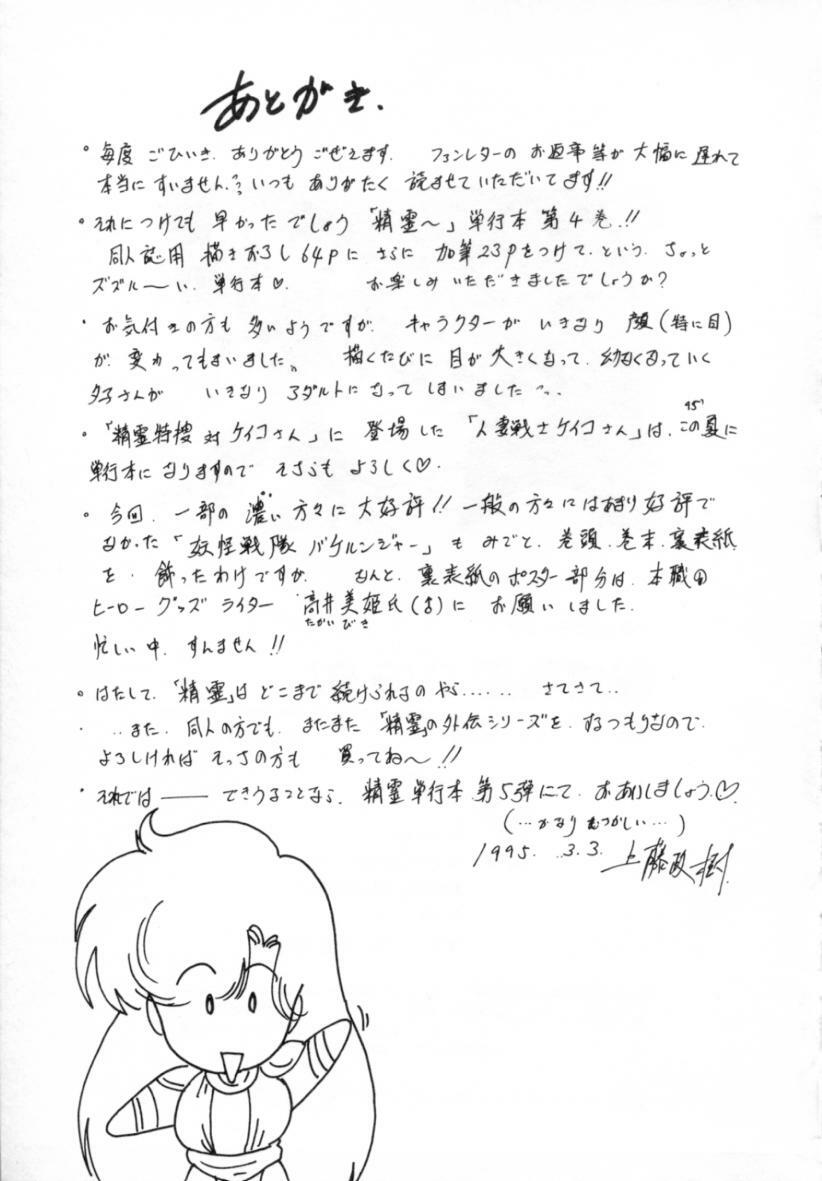 あとがき.
・毎度 ごひいき. ありがとう ごぜえます. ファンレターの お返事等が 大幅に 遅れて
本当に すいません. いつも ありがたく 読ませていただいてます!!
・それにつけても 早かったでしょう「精霊〜」単行本 第4巻.!!
同人誌用 描きおろし64Pに さらに 加筆23Pをつけて. という. ちょっと
ズズル〜い. 単行本♡. お楽しみいただきましたでしょうか?
・お気付きの方も 多いようですが. キャラクターが いきなり 顔(特に目)
が. 変わってしまいました。 描くたびに 目が大きくなって. 幼なくなっていく
夕子さんが いきなり アダルトになって しまいました
・「精霊特捜対ケイコさん」に 登場した「人妻戦士ケイコさん」は. この夏に
95'
単行本に なりますので そちらも よろしく♡.
・今回. 一部の 濃い 方々に 大好評!! 一般の方々には あまり 好評で
なかった「妖怪戦隊 バケルンジャー」も みごと. 巻頭. 巻末. 裏表紙
を. 飾ったわけですが. なんと. 裏表紙のポスター部分は. 本職の
ヒーローグッズ ライター 高井美姫氏(♀)に お願いしました.
たかい びき
忙しい中. すんません!!
・はたして.「精霊」は どこまで 続けられるのやら…… さてさて..
・..また. 同人の方でも. またまた「精霊」の外伝シリーズを. するつもりなので.
よろしければ そっちの方も 買ってね〜!!
・それでは―― できうることなら. 精霊単行本. 第5弾にて. おあいしましょう.♡.
(…かなり むつかしい…)
1995. .3.3. 上藤政樹